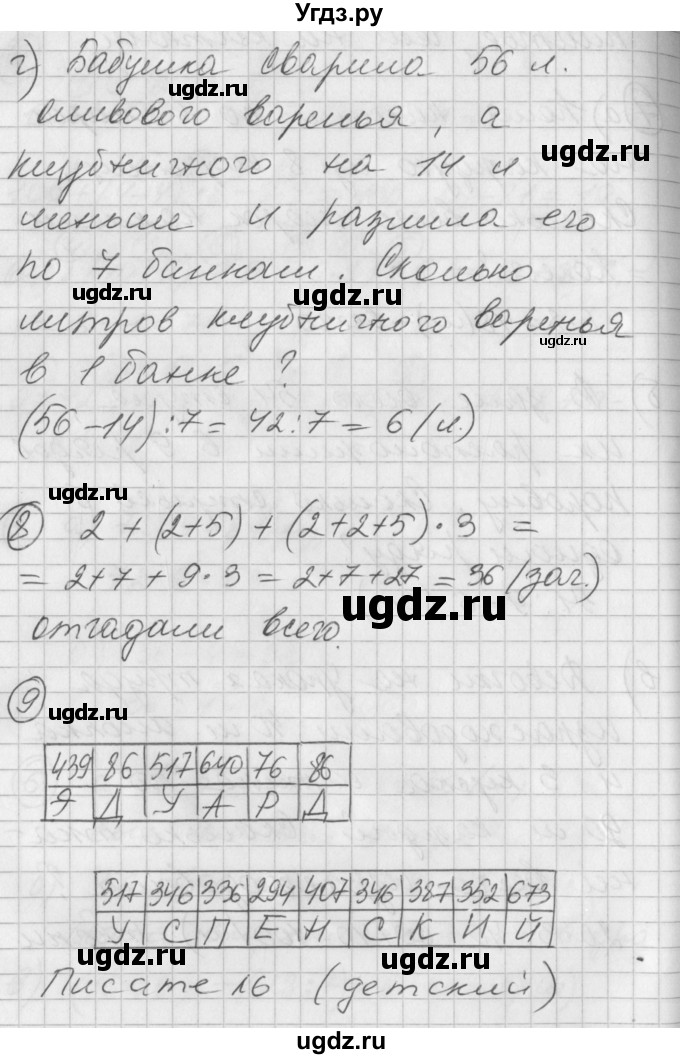 Угдз.ру
г) Бабушка сварила 56 л.
ugdz.ru
сливового варенья, а
ugdz.ru
клубничного на 14 л
меньше и разлила его
по 7 банкам. Сколько
ugdz.ru ugdz.ru
литров клубничного варенья
ugdz.ru
в 1 банке?
(56-14):7=42:7=6(л.)
ugdz.ru
8 2+(2+5)+(2+2+5)·3=
=2+7+9·3=2+7+27=36(заг.)
ugdz.ru
отгадали всего.
9
ugdz.ru
439 86 517 640 76 86
Э Д У А Р Д
517 346 336 294 407 346 387 352 673
У С П Е Н С К И Й
ugdz.ru ugdz.ru
Писатель (детский)
ugdz.ru ugdz.ru